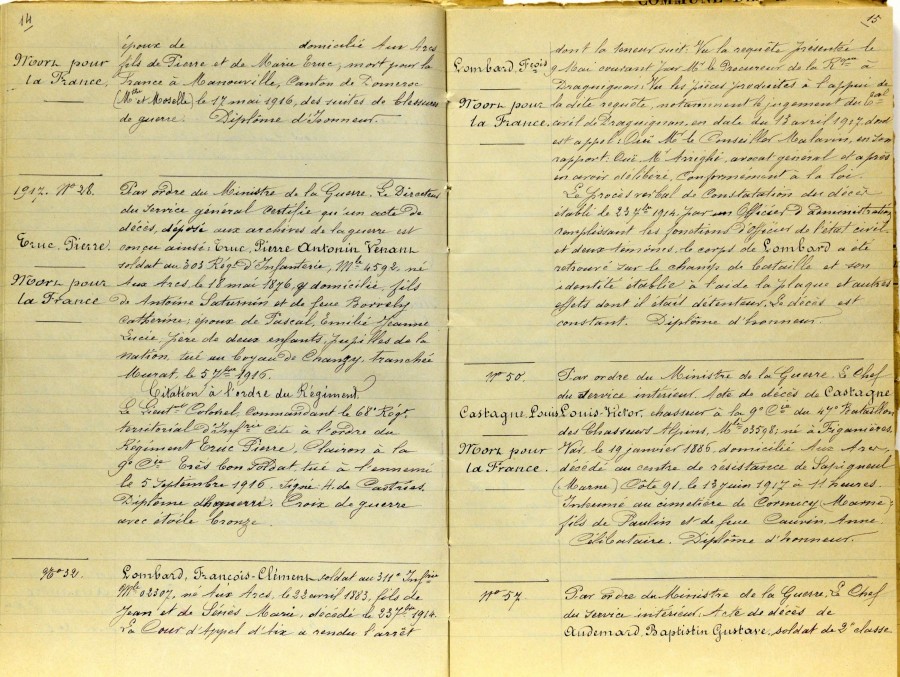 14
époux de domiciliée Aux Arcs
Mort pour
fils de Pierre et de Marie Truc, mort pour la
la France.
France à Manouville, Canton de Domèvre
(Mthe et Moselle) le 17 mai 1916, des suites de blessures
de guerre. Diplôme d'honneur.
1917. N° 28.
Par ordre du Ministre de la Guerre. Le Directeur
du Service général certifie qu'un acte de
décès, déposé aux archives de la guerre est
Truc, Pierre.
conçu ainsi: Truc, Pierre Antonin Venant
soldat au 303 Régt d'Infanterie, Mle 4592, né
Mort pour
Aux Arcs le 18 mai 1876, y domicilié, fils
la France
de Antoine Saturnin et de feue Borrely
Catherine; époux de Pascal, Emilie Jeanne
Lucie, père de deux enfants, pupilles de la
Nation, tué au boyau de Chanzy, tranchée
Murat, le 5 7bre 1916.
Citation à l'ordre du Régiment.
Le Lieutt Colonel, Commandant le 68e Régt
territorial d'Infrie Cite à l'ordre du
Régiment Truc Pierre, Clairon à la
9e Cie Très bon Soldat, tué à l'ennemi
le 5 Septembre 1916. Signé H. de Castries.
Diplôme d'honneur. Croix de guerre
avec étoile bronze.
N° 32.
Lombard, François-Clément soldat au 311e Infrie
Mle 02307, né Aux Arcs, le 23 avril 1883, fils de
Jean et de Sénès Marie, décédé le 23 7bre 1914.
La Cour d'Appel d'Aix a rendu l'arrêt
15
dont la teneur suit: Vu la requête présentée le
Lombard, Fçois
9 Mai courant par Mr le Procureur de la Rque à
Draguignan; Vu les pièces produites à l'appui de
Mort pour
la dite requête, notamment le jugement du Tbal
la France.
civil de Draguignan, en date du 13 avril 1917, dont
est appel; Ouï Mr le Conseiller Malavin, en son
rapport; Ouï Mr Arrighi, avocat général et après
en avoir délibéré, Conformément à la loi.
Le procès verbal de Constatation du décès
établi le 23 7bre 1914, par un Officier d'administration
remplissant les fonctions d'officier de l'état civil
et deux témoins, le corps de Lombard a été
retrouvé sur le champ de bataille et son
identité établie à l'aide de la plaque et autres
effets dont il était détenteur. Le décès est
constant. Diplôme d'honneur
N° 50.
Par ordre du Ministre de la Guerre. Le Chef
du service intérieur. Acte de décès de Castagne
Castagne Louis
Louis-Victor, chasseur à la 9e Cie du 47e Bataillon
des Chasseurs Alpins, Mle 03598; né à Figanières,
Mort pour
Var, le 19 janvier 1886, domicilié Aux Arcs,
la France.
décédé au centre de résistance de Sapigneul
(Marne) Côte 91, le 13 juin 1917 à 11 heures.
Inhumé au cimetière de Cormicy (Marne);
fils de Paulin et de feue Cauvin Anne.
Célibataire. Diplôme d'honneur.
N° 57.
Par ordre du Ministre de la Guerre, Le Chef
du Service intérieur. Acte de décès de
Audemard, Baptistin Gustave, soldat de 2e classe